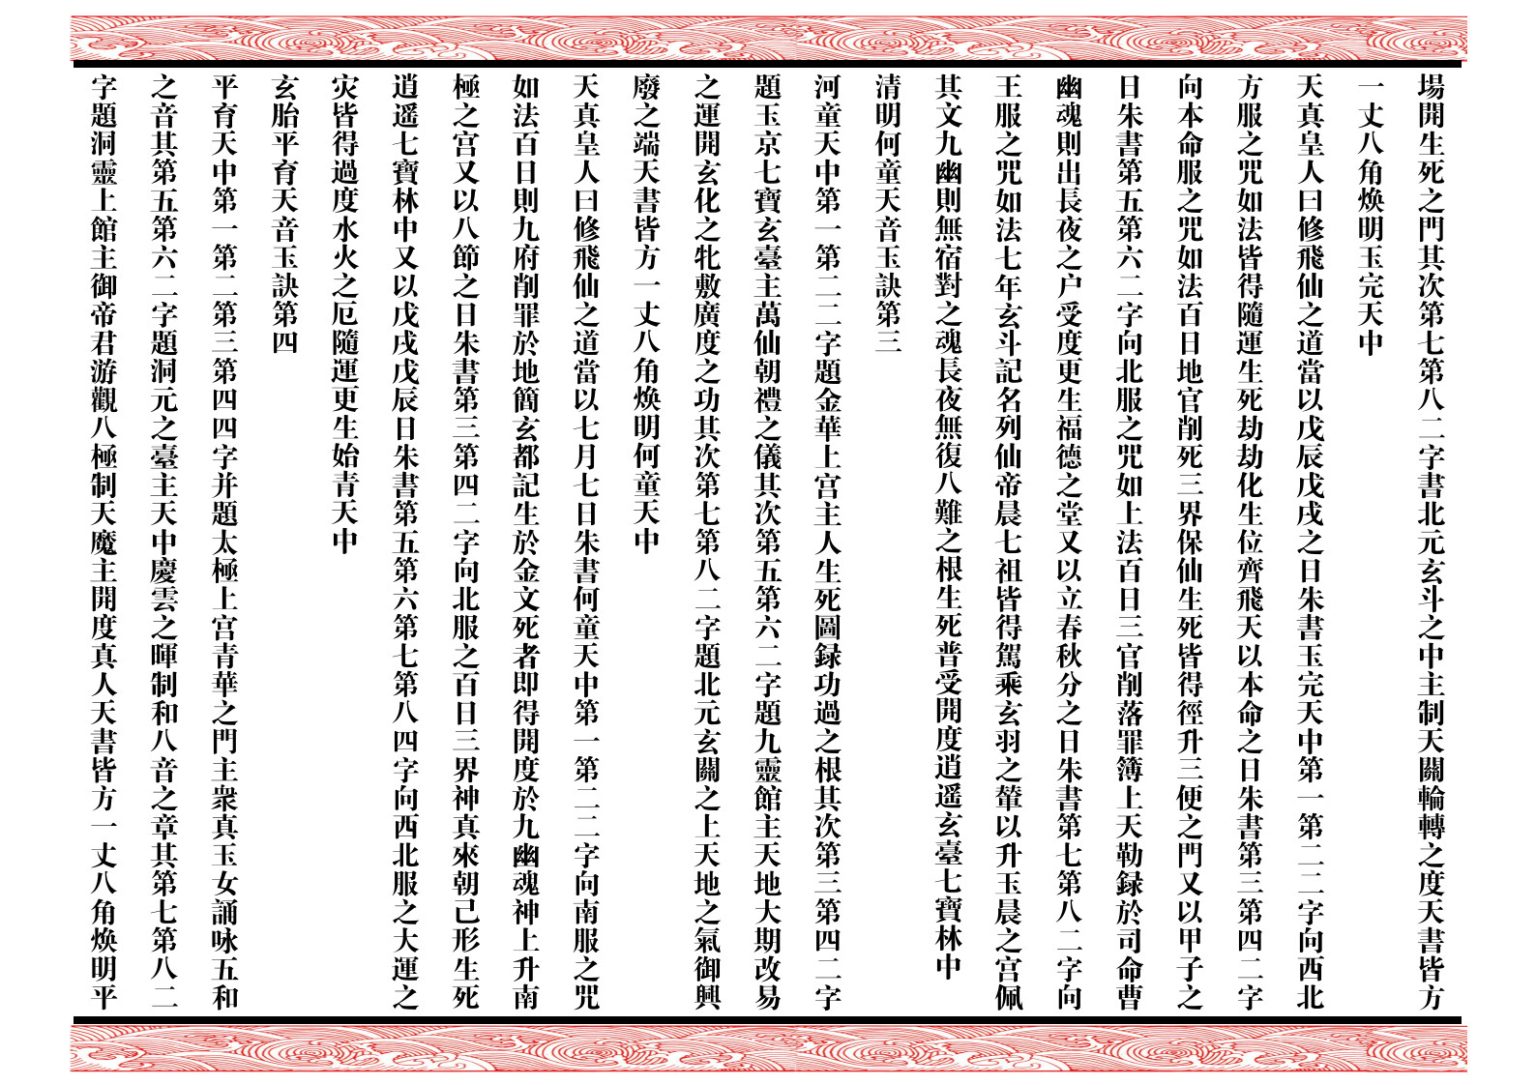 場開生死之門其次第七第八二字書北元玄斗之中主制天關輪轉之度天書皆方
一丈八角煥明玉完天中
天真皇人曰修飛仙之道當以戊辰戊戌之日朱書玉完天中第一第二二字向西北
方服之咒如法皆得隨運生死劫劫化生位齊飛天以本命之日朱書第三第四二字
向本命服之咒如法百日地官削死三界保仙生死皆得徑升三便之門又以甲子之
日朱書第五第六二字向北服之咒如上法百日三官削落罪簿上天勒録於司命曹
幽魂則出長夜之户受度更生福德之堂又以立春秋分之日朱書第七第八二字向
王服之咒如法七年玄斗記名列仙帝晨七祖皆得駕乘玄羽之輦以升玉晨之宫佩
其文九幽則無宿對之魂長夜無復八難之根生死普受開度逍遥玄臺七寶林中
清明何童天音玉訣第三
河童天中第一第二二字題金華上宫主人生死圖録功過之根其次第三第四二字
題玉京七寶玄臺主萬仙朝禮之儀其次第五第六二字題九靈館主天地大期改易
之運開玄化之牝敷廣度之功其次第七第八二字題北元玄關之上天地之氣御興
廢之端天書皆方一丈八角煥明何童天中
天真皇人曰修飛仙之道當以七月七日朱書何童天中第一第二二字向南服之咒
如法百日則九府削罪於地簡玄都記生於金文死者即得開度於九幽魂神上升南
極之宫又以八節之日朱書第三第四二字向北服之百日三界神真來朝己形生死
逍遥七寶林中又以戊戌戊辰日朱書第五第六第七第八四字向西北服之大運之
灾皆得過度水火之厄隨運更生始青天中
玄胎平育天音玉訣第四
平育天中第一第二第三第四四字并題太極上宫青華之門主衆真玉女誦咏五和
之音其第五第六二字題洞元之臺主天中慶雲之暉制和八音之章其第七第八二
字題洞靈上館主御帝君游觀八極制天魔主開度真人天書皆方一丈八角煥明平